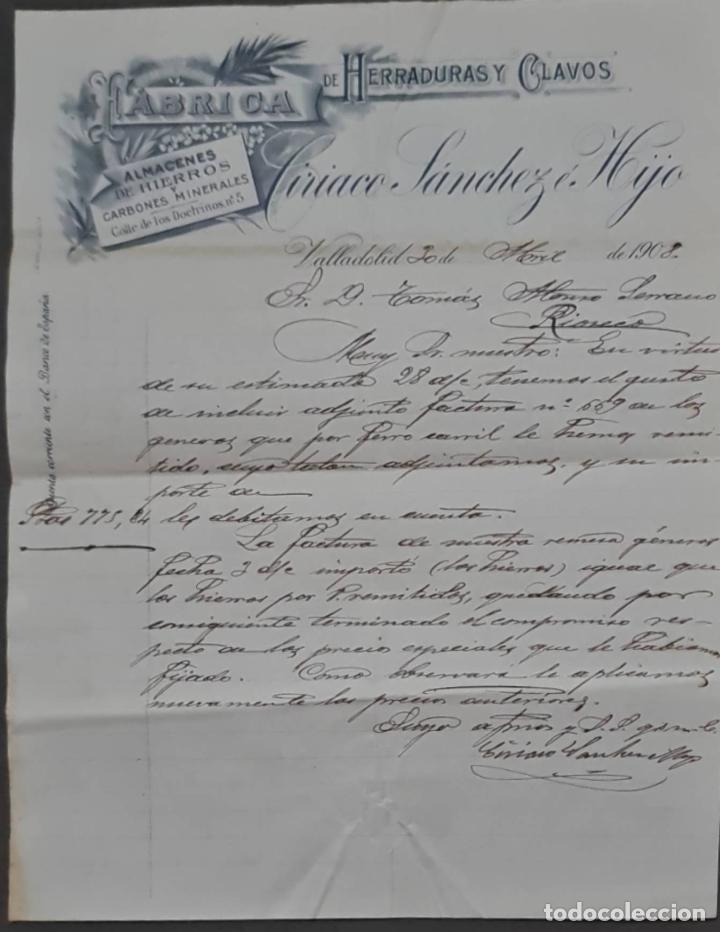 FÁBRICA DE HERRADURAS Y CLAVOS
ALMACENES
DE HIERROS
Y
CARBONES MINERALES
Calle de los Doctrinos, nº 5
Ciriaco Sánchez é Hijo
Valladolid 30 de Abril de 1908.
Sr. D. Tomás Alonso Serrano
Rioseco
Muy Sr. nuestro: En virtud
de su estimada 28 d/c, tenemos el gusto
de incluir adjunto factura nº 669 de los
generos que por ferro carril le hemos remi-
tido, cuyo talon adjuntamos, y su im-
porte de
Ptas 775,84 les debitamos en cuenta.
La factura de nuestra remesa géneros
fecha 3 d/c importó (los hierros) igual que
los hierros por V. remitidos, quedando por
consiguiente terminado el compromiso res-
pecto de los precio especiales que le habiamos
fijado. Como observará le aplicamos
nuevamente los precios anteriores.
Suyo afmos y S.S. q.s.m.b.
Ciriaco Sanchez é Hijo
Cuenta corriente en el Banco de España
todocoleccion
todocoleccion.net